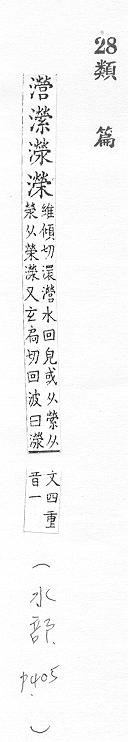 28
類篇
瀯瀠濴濚
維傾切澴瀯水回皃或从縈从
滎从榮濚又玄扃切回波曰濴
文四重
音一
(水部 p405)